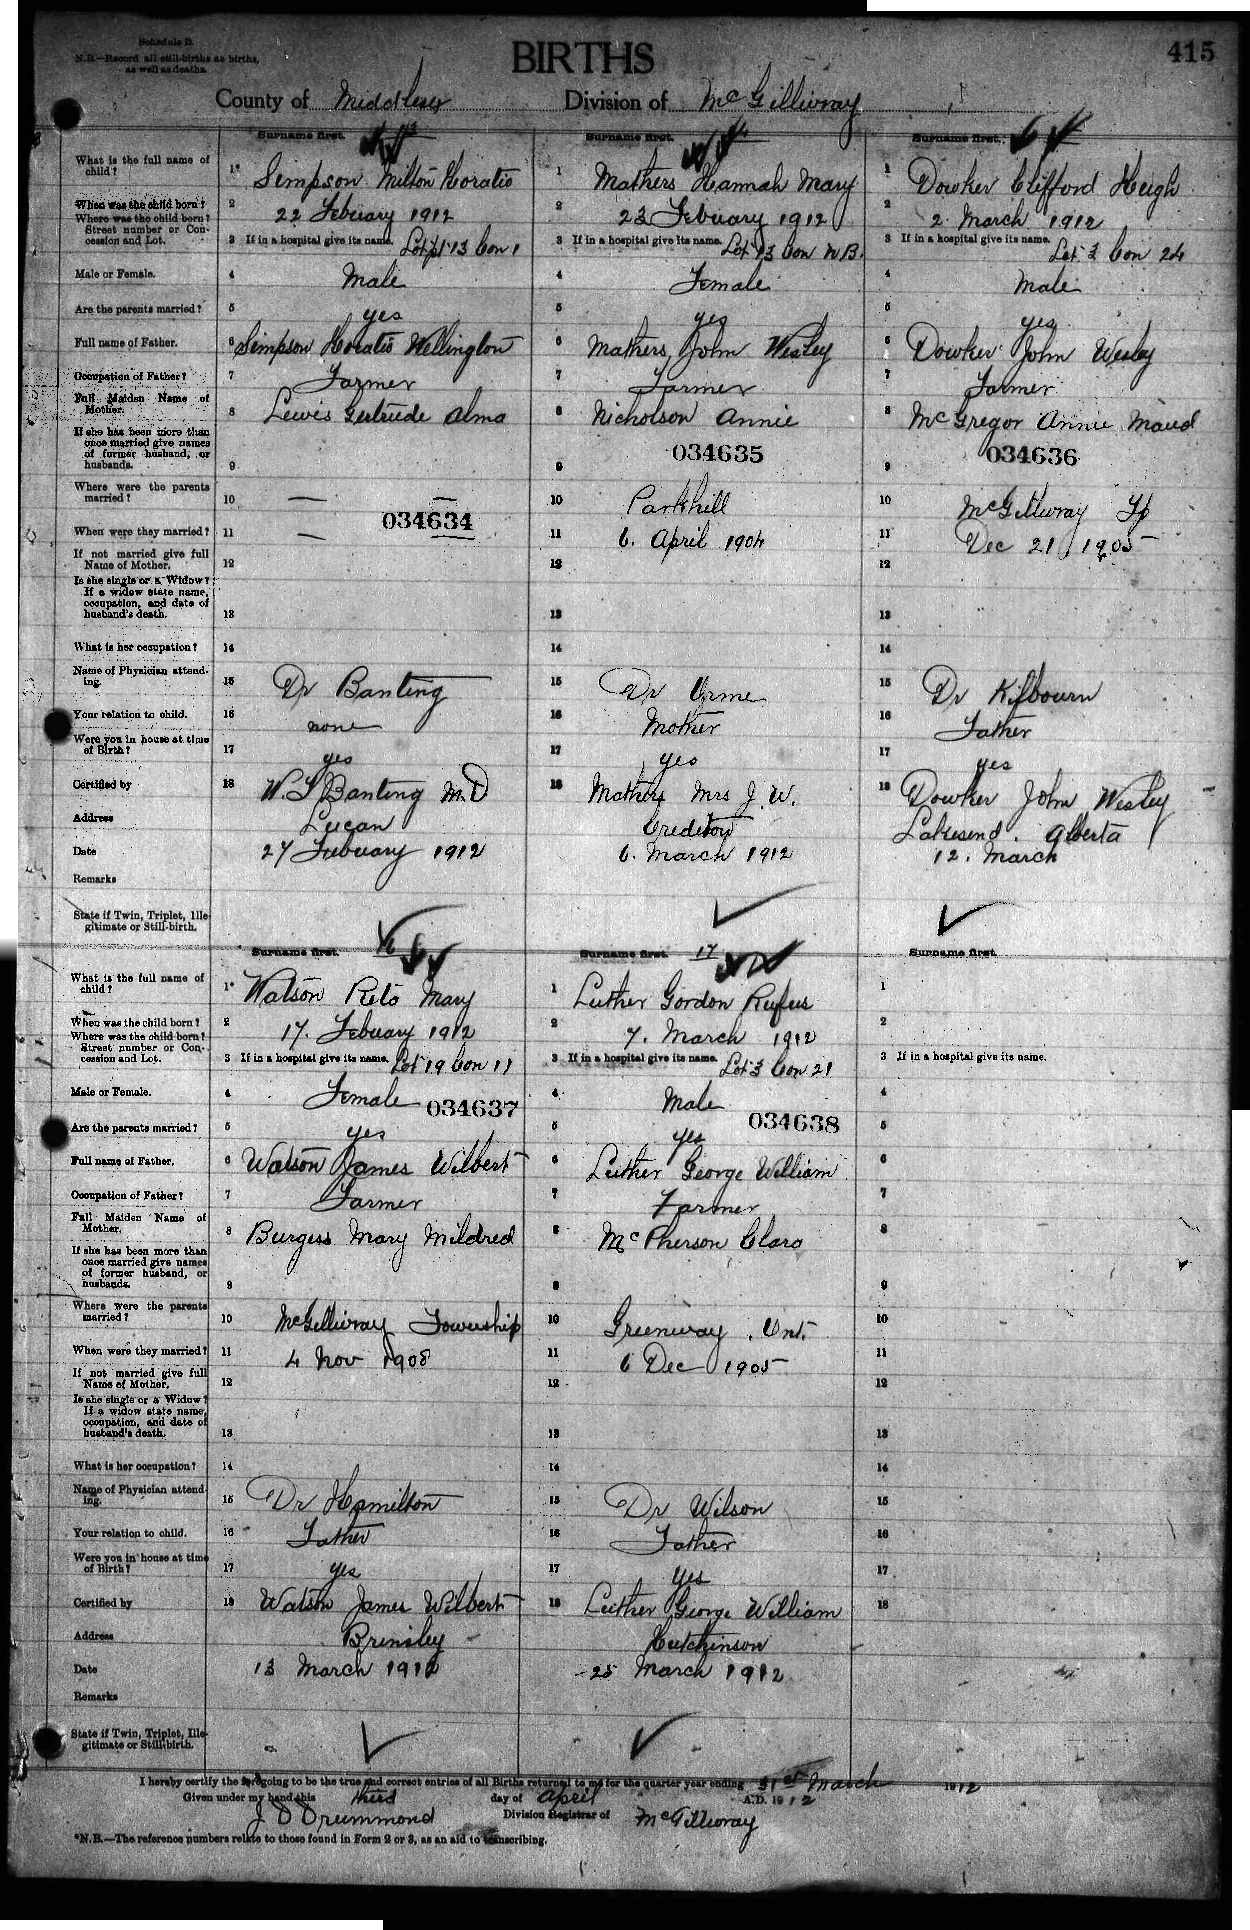 Schedule D.
N.B.—Record all still-births as births,
as well as deaths.
BIRTHS
415
County of Middlesex Division of McGillivray
Surname first. Surname first. 14 Surname first.
What is the full name of child? 1* Simpson Milton Horatio 1 Mathers Hannah Mary 1 Dowker Clifford Hugh
When was the child born? 2 22 Febuary 1912 2 23 Febuary 1912 2 2. March 1912
Where was the child born? Street number or Concession and Lot. 3 If in a hospital give its name. Lot 13 Con 1 3 If in a hospital give its name. Lot 13 Con N.B. 3 If in a hospital give its name. Lot 3 Con 24
Male or Female. 4 Male 4 Female 4 Male
Are the parents married? 5 yes 5 yes 5 yes
Full name of Father. 6 Simpson Horatio Wellington 6 Mathers, John Wesley 6 Dowker John Wesley
Occupation of Father? 7 Farmer 7 Farmer 7 Farmer
Full Maiden Name of Mother. 8 Lewis Gertrude Alma 8 Nicholson Annie 8 McGregor Annie Maud
034635 034636
If she has been more than once married give names of former husband, or husbands. 9 9 9
Where were the parents married? 10 — — 10 Parkhill 10 McGillivray Tp
034634
When were they married? 11 — 11 6. April 1904 11 Dec 21, 1905
If not married give full Name of Mother. 12 12 12
Is she single or a Widow? If a widow state name, occupation, and date of husband's death. 13 13 13
What is her occupation? 14 14 14
Name of Physician attending. 15 Dr Banting 15 Dr Orme 15 Dr Kilbourn
Your relation to child. 16 none 16 Mother 16 Father
Were you in house at time of Birth? 17 yes 17 yes 17 yes
Certified by 18 Banting M.D 18 Mathers Mrs J. W. 18 Dowker John Wesley
Address Lucan Crediton Lakesend. Alberta
Date 27 Febuary 1912 6. March 1912 12. March
Remarks
State if Twin, Triplet, Illegitimate or Still-birth.
Surname first. 16 Surname first. 17 Surname first.
What is the full name of child? 1* Watson Reto Mary 1 Luther Gordon Rufus 1
When was the child born? 2 17. Febuary 1912 2 7. March 1912 2
Where was the child born? Street number or Concession and Lot. 3 If in a hospital give its name. Lot 19 Con 11 3 If in a hospital give its name. Lot 3 Con 21 3 If in a hospital give its name.
Male or Female. 4 Female 4 Male 4
034637 034638
Are the parents married? 5 yes 5 yes 5
Full name of Father. 6 Watson James Wilbert 6 Luther George William 6
Occupation of Father? 7 Farmer 7 Farmer 7
Full Maiden Name of Mother. 8 Burgess Mary Mildred 8 McPherson Clara 8
If she has been more than once married give names of former husband, or husbands. 9 9 9
Where were the parents married? 10 McGillivray Township 10 Greenway. Ont. 10
When were they married? 11 4 Nov 1908 11 6 Dec 1905 11
If not married give full Name of Mother. 12 12 12
Is she single or a Widow? If a widow state name, occupation, and date of husband's death. 13 13 13
What is her occupation? 14 14 14
Name of Physician attending. 15 Dr Hamilton 15 Dr Wilson 15
Your relation to child. 16 Father 16 Father 16
Were you in house at time of Birth? 17 yes 17 yes 17
Certified by 18 Watson James Wilbert 18 Luther George William 18
Address Brinsley Hutchinson
Date 13 March 1912 25 March 1912
Remarks
State if Twin, Triplet, Illegitimate or Still-birth.
I hereby certify the foregoing to be the true and correct entries of all Births returned to me for the quarter year ending 31st March 1912
Given under my hand this third day of April A.D. 1912
J D Drummond Division Registrar of McGillivray
*N.B.—The reference numbers relate to those found in Form 2 or 3, as an aid to transcribing.